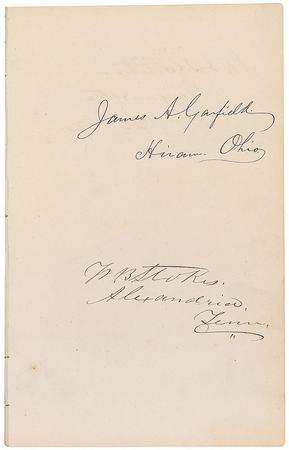 James A. Garfield.
Hiram. Ohio
W B Stokes.
Alexandria,
Tenn.